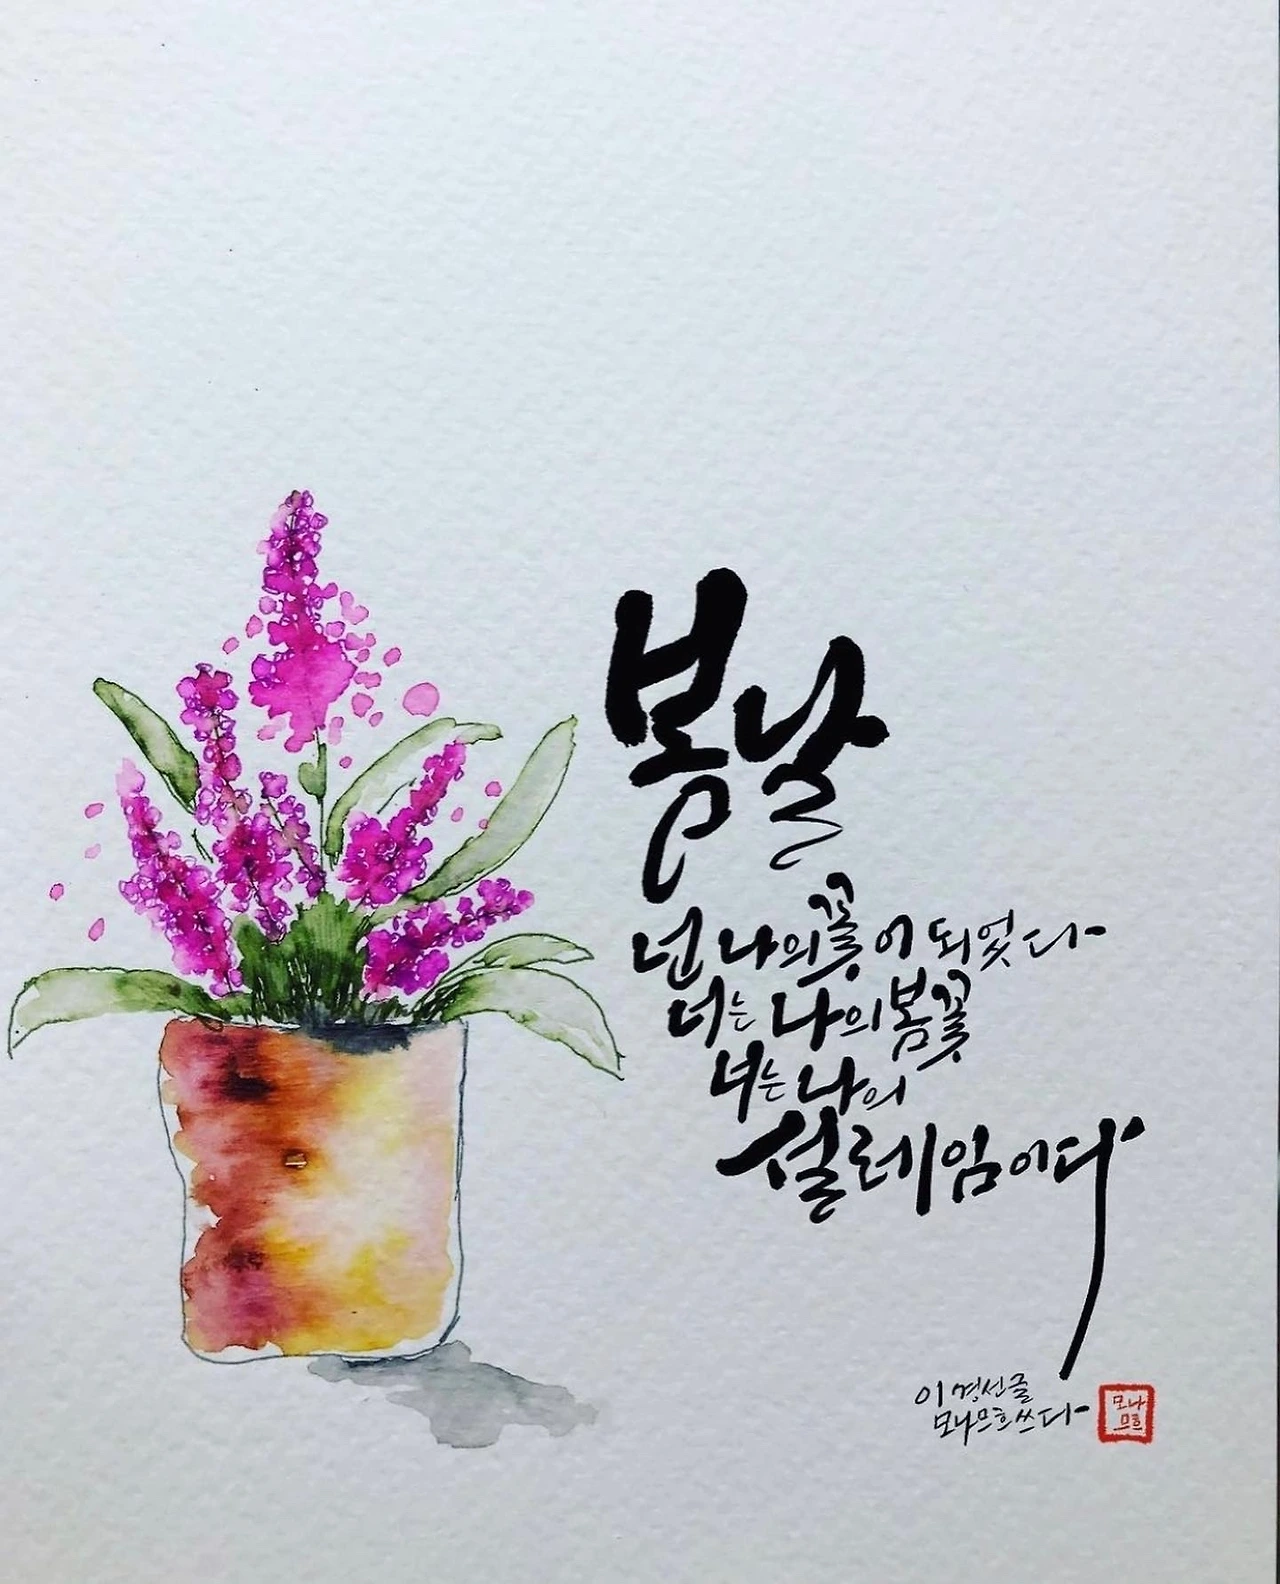 봄날
넌 나의 꽃이 되었다
너는 나의 봄꽃
너는 나의
설레임이다
이경선글
모나므흐쓰다
모나
므흐